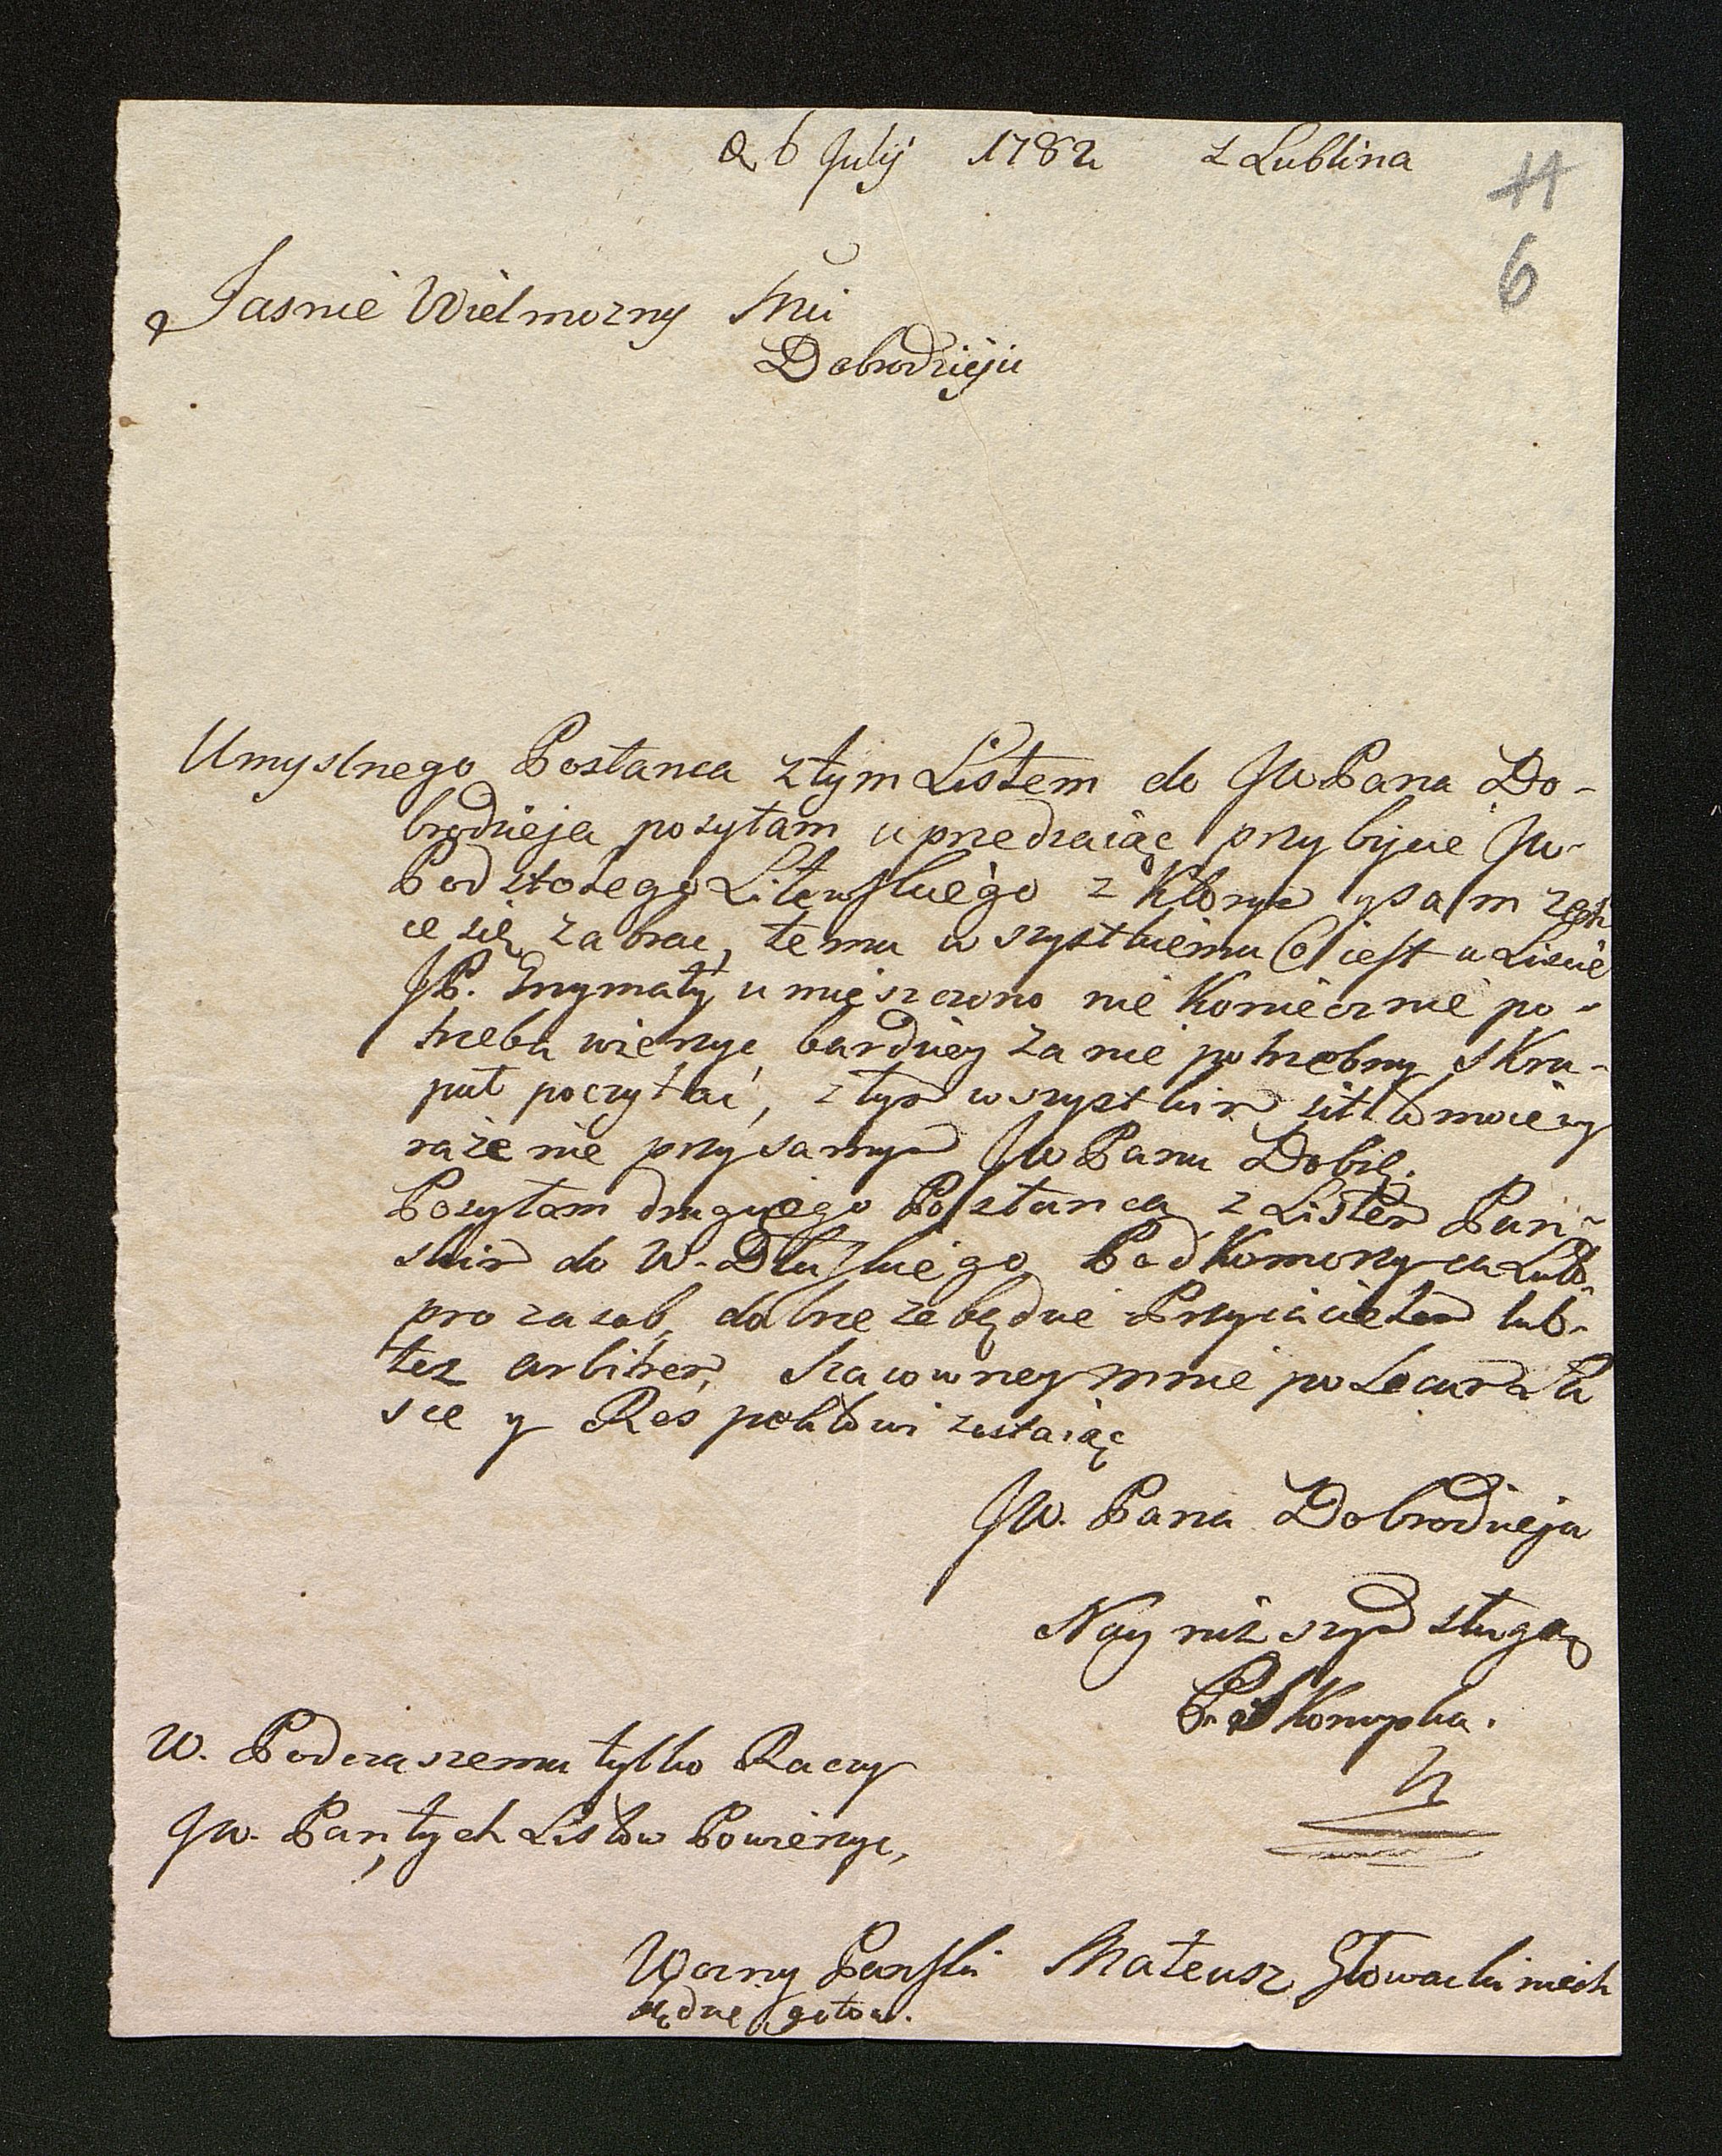 d 6 Julij 1782 z Lublina
11
6
Jasnie Wielmozny Mci
Dobrodzieju
Umyslnego Posłanca z tym Listem do JW Pana Do-
brodzieja posyłam uprzedzaiąc przybycie JW-
Podstolego Litewskiego z Ktorym y sam zech
ce się zabrac, temu wszystkiemu Co iest w Liscie
JP. Grzymały umieszczono nie Koniecznie po-
trzeba wierzyc, bardziey za nie potrzebny skru-
puł poczytac, z tym wszystkim iest to moie wy
razenie przy samym JW Panu Dobr.
Posyłam drugiego Posłanca z Listem Pan-
skim do W. Dłuskiego Podkomorzyca Lub.
pro zasob, dobrze ze będzie Przyiacielem lub-
tez arbitrem, szacowney mnie polecam Ła
sce y Respektowi zostaiąc
JW. Pana Dobrodzieja
Nayniższym sługą
P. Skonupka.
W. Podczaszemu tylko Raczy
JW. Pan, tych Listow Powierzyc,
Wozny Panski Mateusz Głowacki niech
będzie gotow.